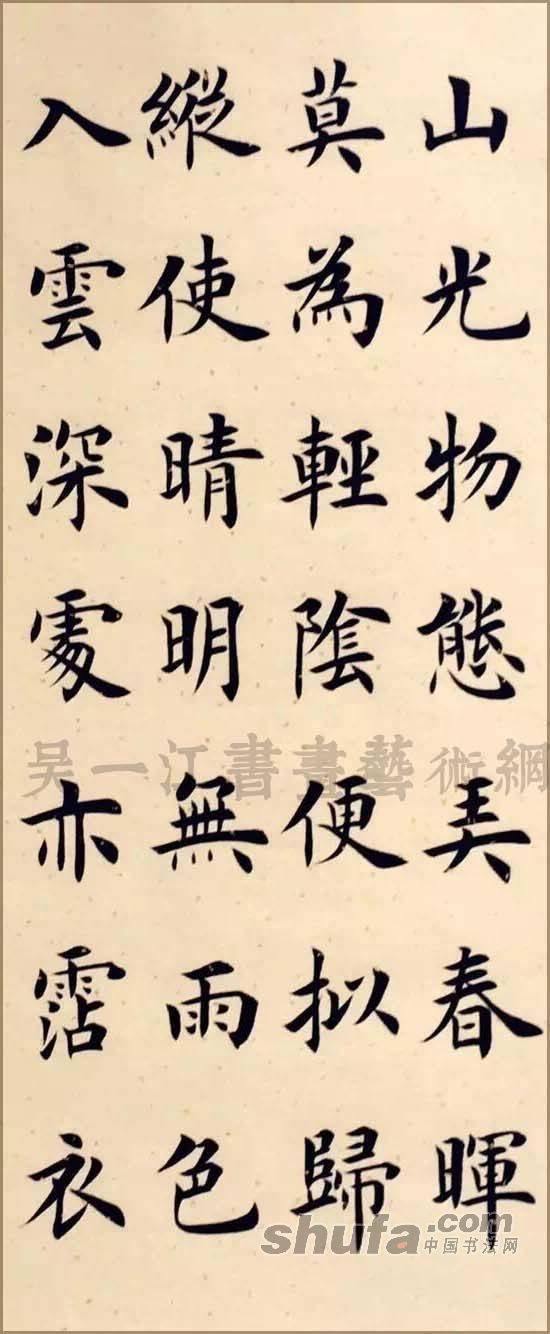 山光物態弄春暉
莫為輕陰便拟歸
縱使晴明無雨色
入雲深處亦霑衣
吴一江書畫藝術網
shufa.com
中国书法网